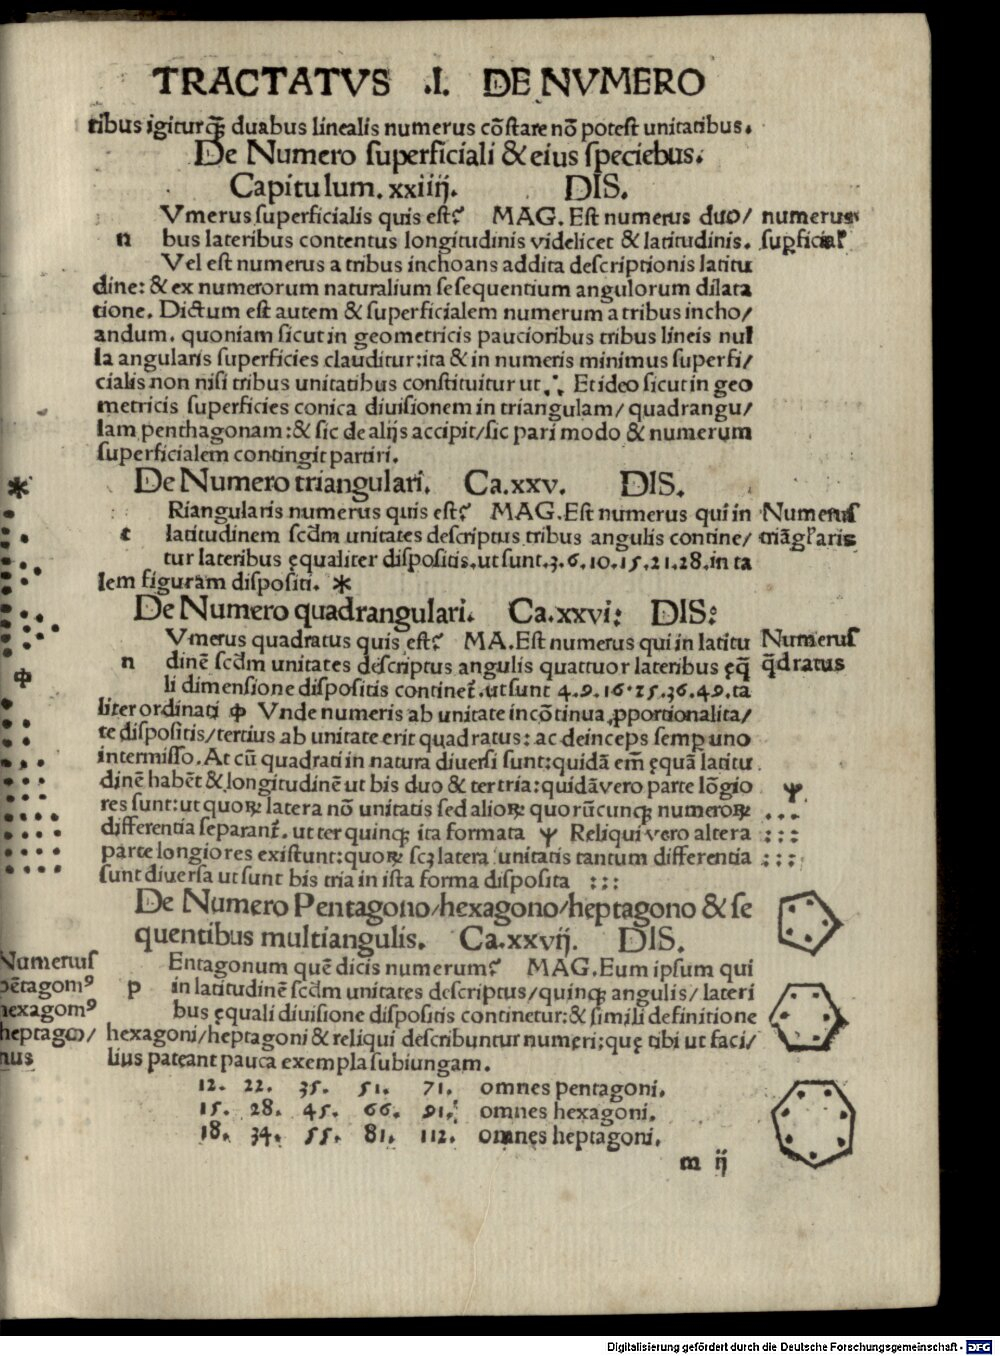 TRACTATVS .I. DE NVMERO
tibus igiturqꝫ duabus linealis numerus cõstare nõ potest unitatibus.
De Numero superficiali & eius speciebus.
Capitulum. xxiiij. DIS.
Vmerus superficialis quis est? MAG. Est numerus duo/
n bus lateribus contentus longitudinis videlicet & latitudinis.
numerus
suꝑficial'
Vel est numerus a tribus inchoans addita descriptionis latitu
dine: & ex numerorum naturalium se sequentium angulorum dilata
tione. Dictum est autem & superficialem numerum a tribus incho/
andum. quoniam sicut in geometricis paucioribus tribus lineis nul
la angularis superficies clauditur: ita & in numeris minimus superfi/
cialis non nisi tribus unitatibus constituitur ut ∴ Et ideo sicut in geo
metricis superficies conica diuisionem in triangulam/ quadrangu/
lam penthagonam: & sic de alijs accipit/ sic pari modo & numerum
superficialem contingit partiri.
De Numero triangulari. Ca. xxv. DIS.
Riangularis numerus quis est? MAG. Est numerus qui in
t latitudinem scd̄m unitates descriptus tribus angulis contine/
tur lateribus ęqualiter dispositis. ut sunt .3.6.10.15.21.28. in ta
lem figuram dispositi. *
Numerus
triãgl'aris
*
De Numero quadrangulari. Ca. xxvi: DIS:
Vmerus quadratus quis est? MA. Est numerus qui in latitu
n dinẽ scd̄m unitates descriptus angulis quattuor lateribus ęq̃
li dimensione dispositis continet̃. ut sunt 4.9.16.25.36.49. ta
liter ordinati ф Vnde numeris ab unitate in cõtinua ꝓportionalita/
te dispositis/ tertius ab unitate erit quadratus: ac deinceps semp uno
intermisso. At cũ quadrati in natura diuersi sunt: quidã em̃ ęquã latitu
dinẽ habẽt & longitudinẽ ut bis duo & ter tria: quidã vero parte lõgio
res sunt: ut quoꝝ latera nõ unitatis sed alioꝝ quorũcunqꝫ numeroꝝ
differentia separant̃. ut ter quinqꝫ ita formata Ψ Reliqui vero altera
parte longiores existunt: quoꝝ scꝫ latera unitatis tantum differentia
sunt diuersa ut sunt bis tria in ista forma disposita :::
Numerus
q̃dratus
ф
Ψ
De Numero Pentagono/hexagono/heptagono & se
quentibus multiangulis. Ca. xxvij. DIS.
Entagonum quẽ dicis numerum? MAG. Eum ipsum qui
p in latitudinẽ scd̄m unitates descriptus/ quinqꝫ angulis/ lateri
bus ęquali diuisione dispositis continetur: & simili definitione
hexagoni/heptagoni & reliqui describuntur numeri: quę tibi ut faci/
lius pateant pauca exempla subiungam.
Numerus
pẽtagom⁹
hexagom⁹
heptago/
nus
12. 22. 35. 51. 71. omnes pentagoni.
15. 28. 45. 66. 91. omnes hexagoni.
18. 34. 55. 81. 112. omnes heptagoni.
m ij
Digitalisierung gefördert durch die Deutsche Forschungsgemeinschaft - DFG